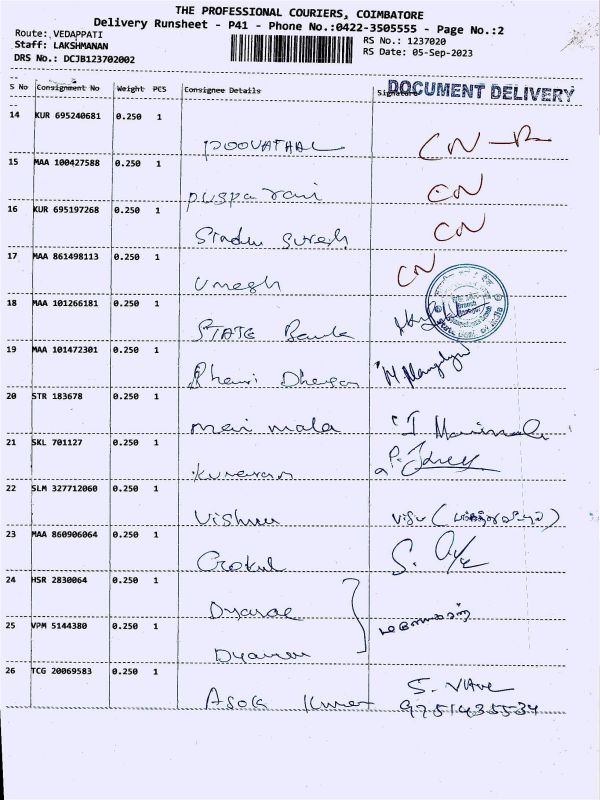 THE PROFESSIONAL COURIERS, COIMBATORE
Delivery Runsheet - P41 - Phone No.:0422-3505555 - Page No.:2
Route: VEDAPPATI
Staff: LAKSHMANAN
DRS No.: DCJB123702002
RS No.: 1237020
RS Date: 05-Sep-2023
S No Consignment No Weight PCS Consignee Details Signature
DOCUMENT DELIVERY
14 KUR 695240681 0.250 1 POOVATHAL CN-R
15 MAA 100427588 0.250 1 puspa rani CN
16 KUR 695197268 0.250 1 Sindhu Suresh CN
17 MAA 861498113 0.250 1 Umegh CN
18 MAA 101266181 0.250 1 STATE Bank
19 MAA 101472301 0.250 1
20 STR 183678 0.250 1 mani mala
21 SKL 701127 0.250 1
22 SLM 327712060 0.250 1 Vishnu
23 MAA 860906064 0.250 1 Gokul
24 HSR 2830064 0.250 1
25 VPM 5144380 0.250 1
26 TCG 20069583 0.250 1 Asok Kumar